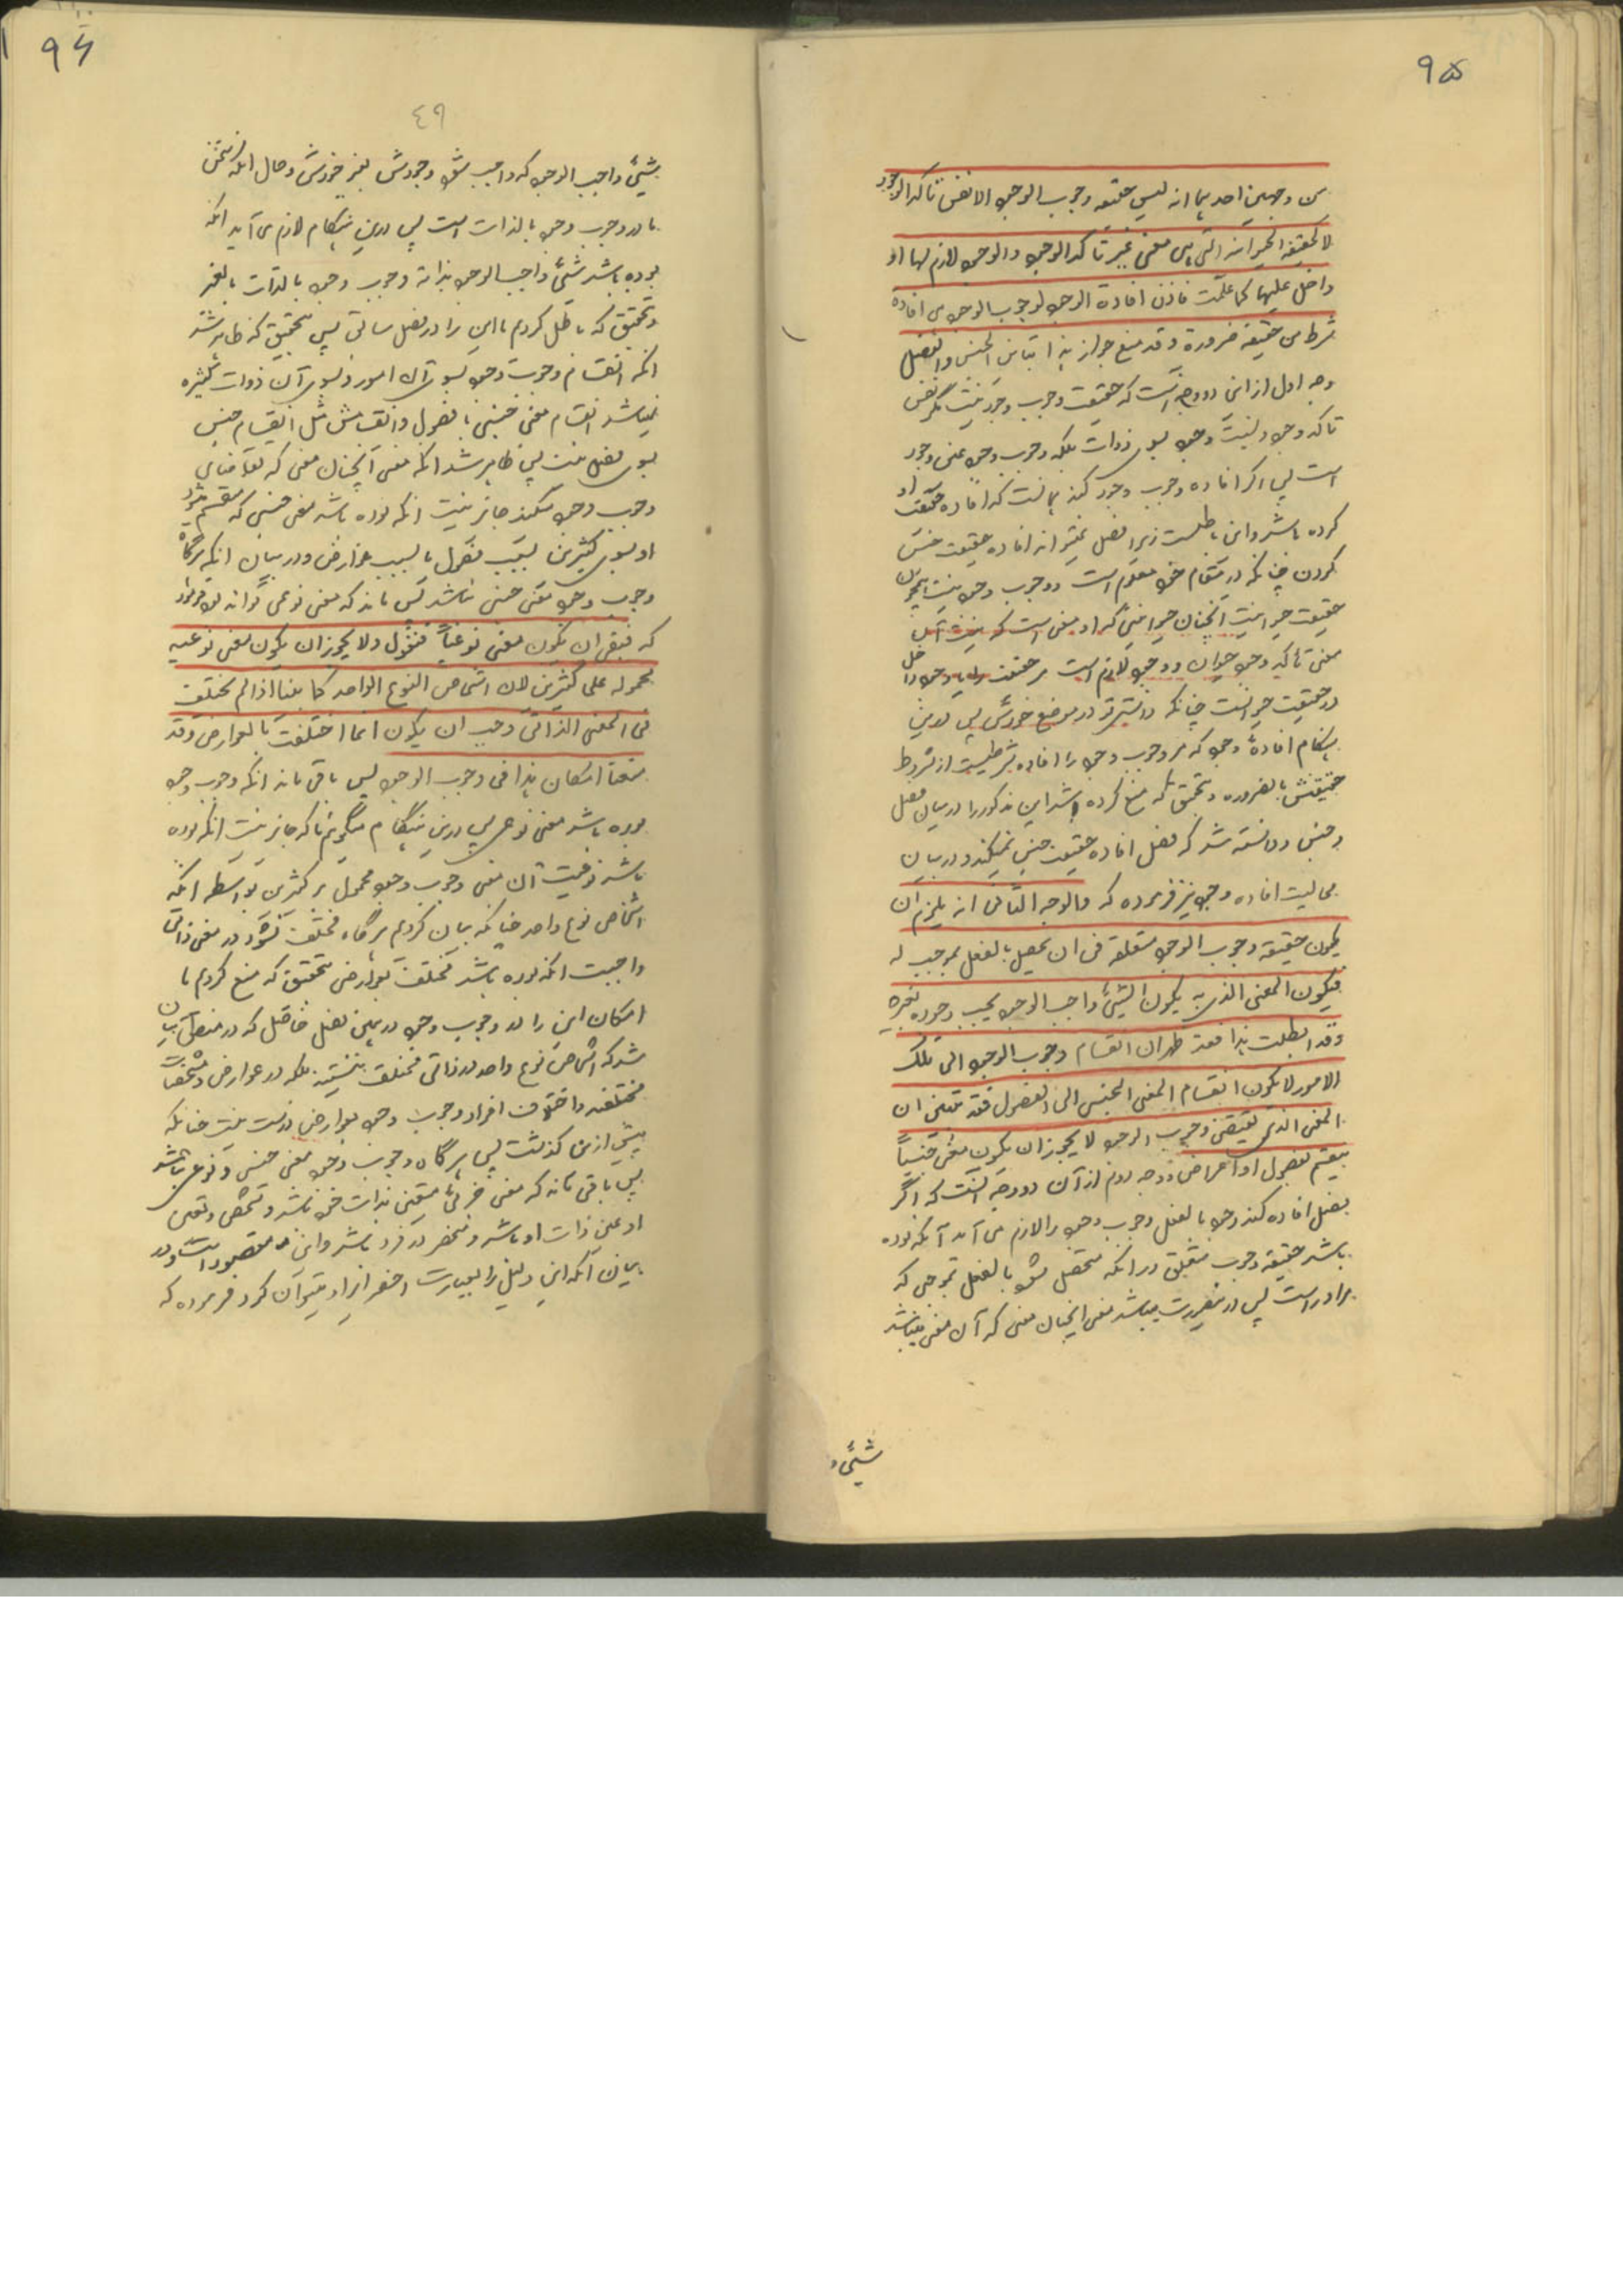 ۹۵
من وجهين احدهما انه ليس حقيقه وجوب الوجود الا نفس تاكد الوجود
لا كحقيقه الحيوانيه التى هى معنى غير تاكد الوجود والوجود لازم لها او
داخل عليها كما علمت فاذن افادة الوجود لوجوب الوجود هى افاده
شرط من حقيقه ضرورة وقد منع جواز هذا ما بين الجنس والفصل
وجه اول از اين دو وجه اينست كه حقيقت وجوب وجود نيست مگر نفس
تاكد وجود و نيست وجود بسوى ذوات بلكه وجوب وجود عين وجود
است پس اگر افاده وجوب وجود كند همانست كه افاده حقيقت او
كرده باشد و اين باطلست زيرا فصل نميتواند افاده حقيقت جنس
كردن چنانكه در مقام خود معلوم است و وجوب وجود نيست همچون
حقيقت حيوانيت آنچنان حيوانيتى كه او معنى است كه نيست آن
معنى تاكيد وجود حيوان و وجود لازم است مر حقيقت را يا وجود داخل
در حقيقت حيوانست چنانكه دانستى تو در موضع خودش پس درين
هنگام افادهٔ وجود كه مر وجوب وجود را افاده شرطيست از شروط
حقيقتش بالضروره و تحقيق كه منع كرده باشد اين مذكور را در ميان فصل
و جنس و دانسته شد كه فصل افاده حقيقت جنس نميكند و در بيان
محاليت افاده وجود نيز فرموده كه والوجه الثانى انه يلزم ان
يكون حقيقه وجوب الوجود متعلقه فى ان يحصل بالفعل بموجب له
فيكون المعنى الذى به يكون الشيئ واجب الوجود يجب وجوده بغيره
وقد ابطلت هذا فقد ظهر ان انقسام وجوب الوجود الى تلك
الامور لا يكون انقسام المعنى الجنسى الى الفصول فقد تبين ان
المعنى الذى يقتضى وجوب الوجود لا يجوز ان يكون معنى جنسياً
ينقسم بفصول او اعراض و وجه دوم از آن دو وجه اينست كه اگر
فصل افاده كند وجود بالفعل وجوب وجود را لازم مى آيد آنكه بوده
باشد حقيقه وجوب متعلق در آنكه متحصل شود بالفعل بموجبى كه
مر او راست پس در نصورت ميباشد معنى آنچنان معنى كه آن معنى ميباشد
شيئ
۹۶
۴۹
شيئ واجب الوجود كه واجب شود وجودش بغير خودش و حال آنكه سخن
ما در وجوب وجود بالذات است پس درين هنگام لازم مى آيد آنكه
بوده باشد شيئ واجب الوجود بذاته و وجوب وجود بالذات بالغير
و تحقيق كه باطل كرديم ما اين را در فصل سابق پس تحقيق كه ظاهر شد
آنكه انقسام وجوب وجود بسوى آن امور و بسوى آن ذوات كثيره
نميباشد انقسام معنى جنسى بفصول و انقسامش مثل انقسام جنس
بسوى فصل نيست پس ظاهر شد آنكه معنى آنچنان معنى كه تقاضاى
وجوب وجود ميكند جايز نيست آنكه بوده باشد معنى جنسى كه منقسم شود
او بسوى كثيرين بسبب فصول يا بسبب عوارض و در بيان آنكه هرگاه
وجوب وجود معنى جنسى نباشد پس ماند كه معنى نوعى تواند بود فرمود
كه فبقى ان يكون معنى نوعياً فنقول ولا يجوز ان يكون معنى نوعيه
محموله على كثيرين لان اشخاص النوع الواحد كما بينا اذا لم يختلف
فى المعنى الذاتى وجب ان يكون انما اختلفت بالعوارض وقد
منعنا امكان هذا فى وجوب الوجود پس باقى ماند آنكه وجوب وجود
بوده باشد معنى نوعى پس درين هنگام ميگويم ما كه جايز نيست آنكه بوده
باشد نوعيت آن معنى وجوب وجود محمول بر كثيرين بواسطه آنكه
اشخاص نوع واحد چنانكه بيان كرديم هرگاه مختلف نشود در معنى ذاتى
واجبست آنكه بوده باشد مختلف بعوارض تحقيق كه منع كرديم ما
امكان اين را در وجوب وجود در همين فصل چنان قبل كه در فصل بيان
شد كه اشخاص نوع واحد در ذاتى مختلف نيستند بلكه در عوارض و مشخصات
مختلفند و اختلاف افراد وجوب وجود بعوارض درست نيست چنانكه
پيش ازين گذشت پس هرگاه وجوب وجود معنى جنسى و نوعى نباشد
پس باقى ماند كه معنى جزئى متعين بذات خود باشد و تشخص و تعين
او عين ذات او باشد و منحصر در فرد باشد و اين مقصود است و در
بيان آنكه اين دليل را بعبارت اخصر ايراد ميتوان كرد فرموده كه